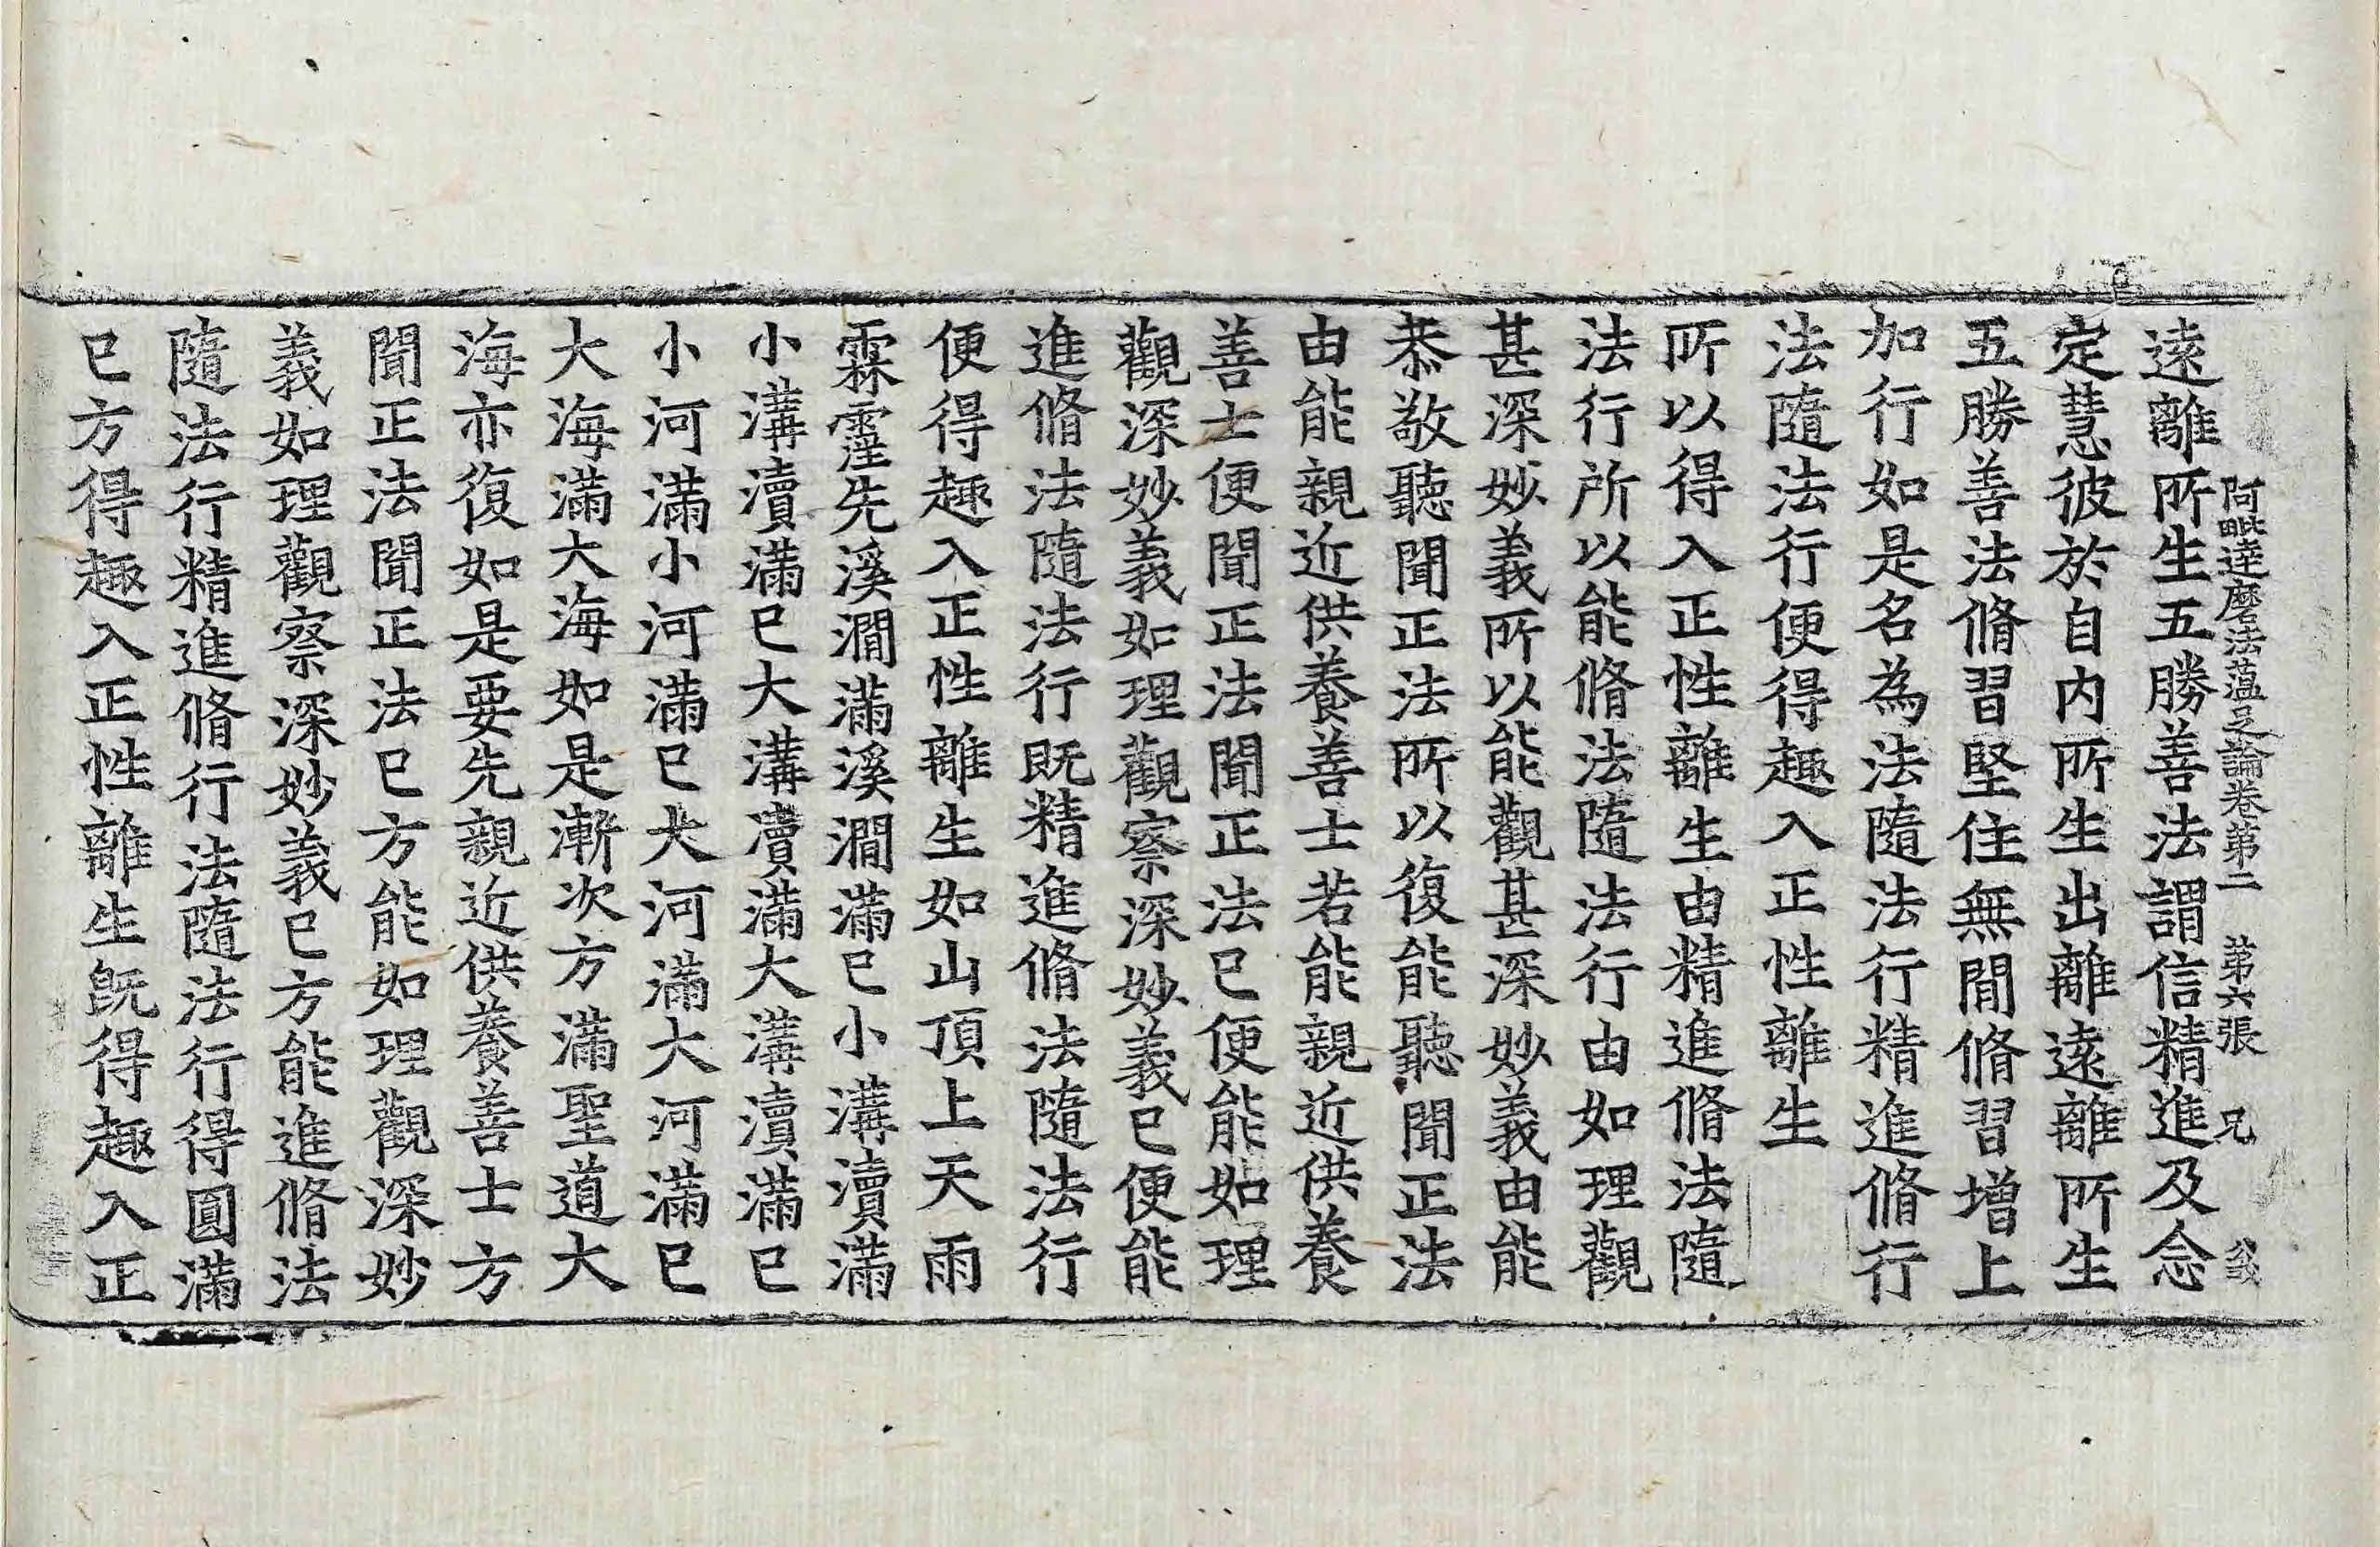 阿毗達磨法蘊足論卷第二　第六張　兄
遠離所生五勝善法謂信精進及念
定慧彼於自内所生出離遠離所生
五勝善法脩習堅住無閒脩習增上
加行如是名為法隨法行精進脩行
法隨法行便得趣入正性離生
所以得入正性離生由精進脩法隨
法行所以能脩法隨法行由如理觀
甚深妙義所以能觀甚深妙義由能
恭敬聽聞正法所以復能聽聞正法
由能親近供養善士若能親近供養
善士便聞正法聞正法已便能如理
觀深妙義如理觀察深妙義已便能
進脩法隨法行既精進脩法隨法行
便得趣入正性離生如山頂上天雨
霖霔先溪澗滿溪澗滿已小溝瀆滿
小溝瀆滿已大溝瀆滿大溝瀆滿已
小河滿小河滿已大河滿大河滿已
大海滿大海如是漸次方滿聖道大
海亦復如是要先親近供養善士方
聞正法聞正法已方能如理觀深妙
義如理觀察深妙義已方能進脩法
隨法行精進脩行法隨法行得圓滿
已方得趣入正性離生既得趣入正